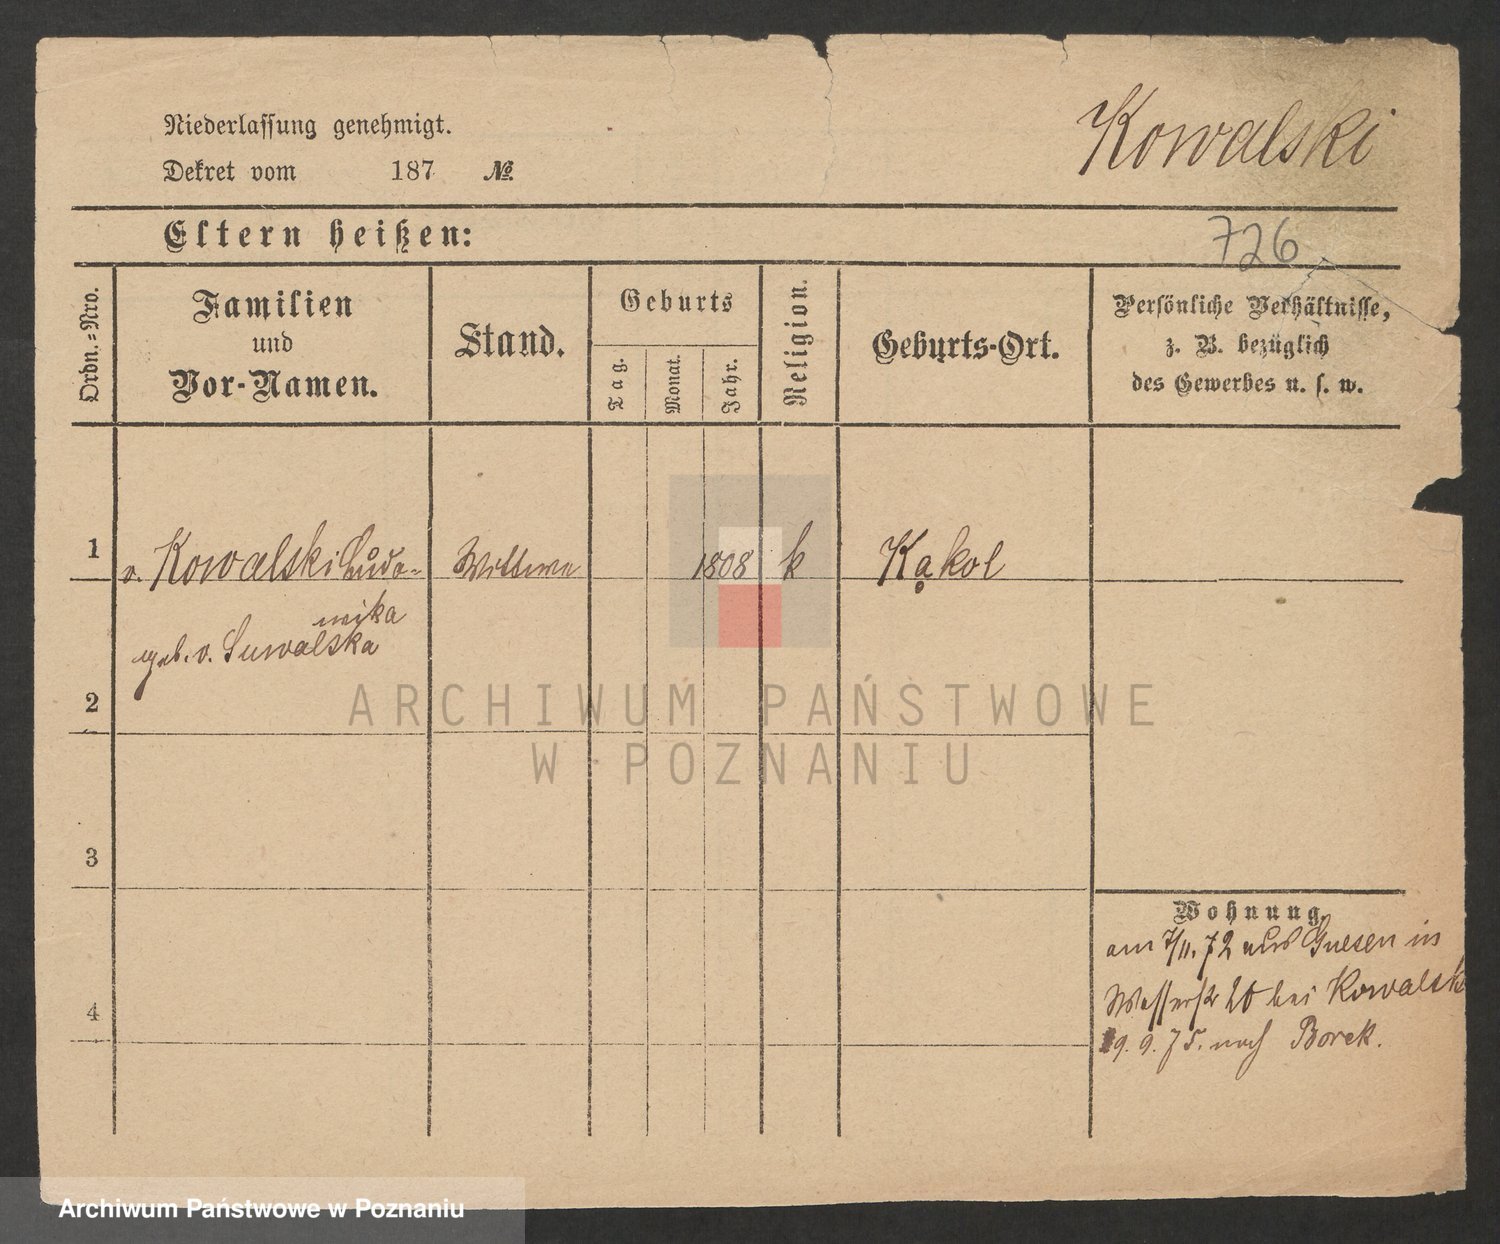 Kowalski
Niederlassung genehmigt.
Dekret vom 187 №
Eltern heißen:
726
Ordn.-Nro.
Familien
und
Vor-Namen.
Stand.
Geburts
Tag.
Monat.
Jahr.
Religion.
Geburts-Ort.
Persönliche Verhältnisse,
z. B. bezüglich
des Gewerbes u. s. w.
1 v. Kowalski Ludo- Wittwe 1808 k Kąkol
wika
geb. v. Suwalska
2
3
4
Wohnung.
am 7/11. 72 aus Gnesen in
Wasserstr 20 bei Kowalsk
19. 9. 75. nach Borek.
ARCHIWUM PAŃSTWOWE
W POZNANIU
Archiwum Państwowe w Poznaniu